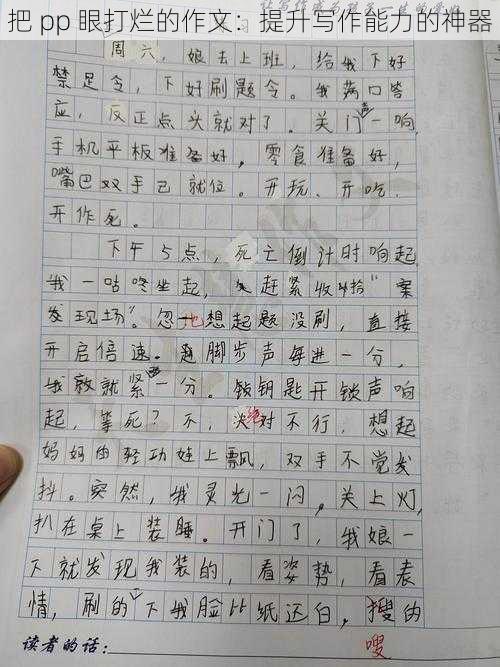 把 pp 眼打烂的作文：提升写作能力的神器
周六，娘去上班，给我下好
禁足令，下好刷题令。我满口答
应，反正点头就对了。关门声一响，
手机平板准备好，零食准备好，
嘴巴双手已就位。开玩、开吃、
开作死。
下午5点，死亡倒计时响起，
我一咕咚坐起，赶紧收拾"案
发现场"。忽地想起题没刷，直接
开启倍速。脚步声每进一分，
我就紧一分。锁钥匙开锁声响
起，等死？不，绝对不行，想起
妈妈的轻功娃上飘，双手不觉发
抖。突然，我灵光一闪，关上灯，
扒在桌上装睡。开门了，我娘一
下就发现我装的，看姿势，看表
情，刷的一下我脸比纸还白，搜的
读者的话：
嗖